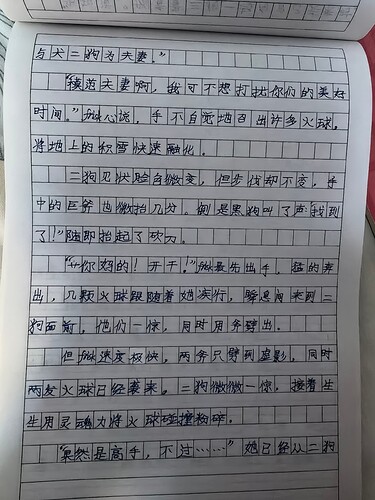 与犬二狗为夫妻。”
“模范夫妻啊，我可不想打扰你们的美好
时间。”她心说，手不自觉地召出许多火球，
将地上的积雪快速融化。
二狗见状脸色微变，但步伐却不变，手
中的巨斧也微抬几分。倒是黑狗叫了声“找到
了！”随即抬起了砍刀。
你妈的！开干！”她最先出手，猛的奔
出，几颗火球跟随着她疾行，瞬息间来到二
狗面前，他们一惊，同时用斧劈出。
但她速度极快，两斧只劈到虚影，同时
两发火球已经袭来。二狗微微一惊，接着生
生用灵魂力将火球碰撞粉碎。
“果然是高手，不过……”她已经从二狗